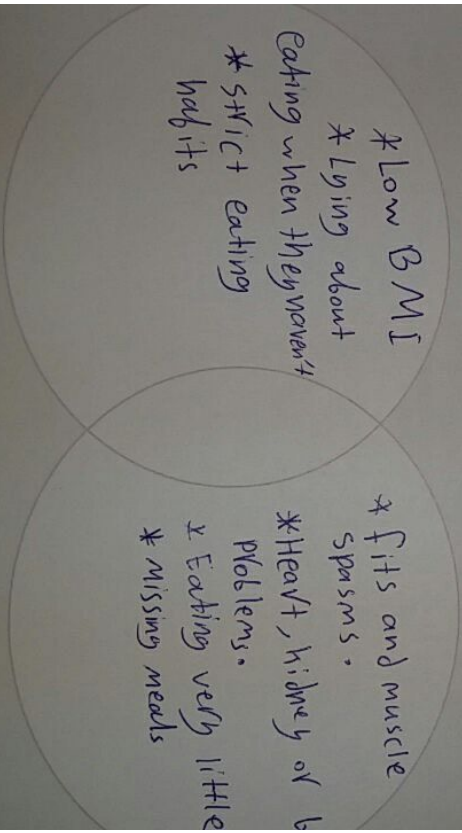 *Low BMI
*Lying about
eating when they haven't
* strict eating
habits
* fits and muscle
spasms.
*Heart, kidney or b
problems.
* Eating very little
* missing meals